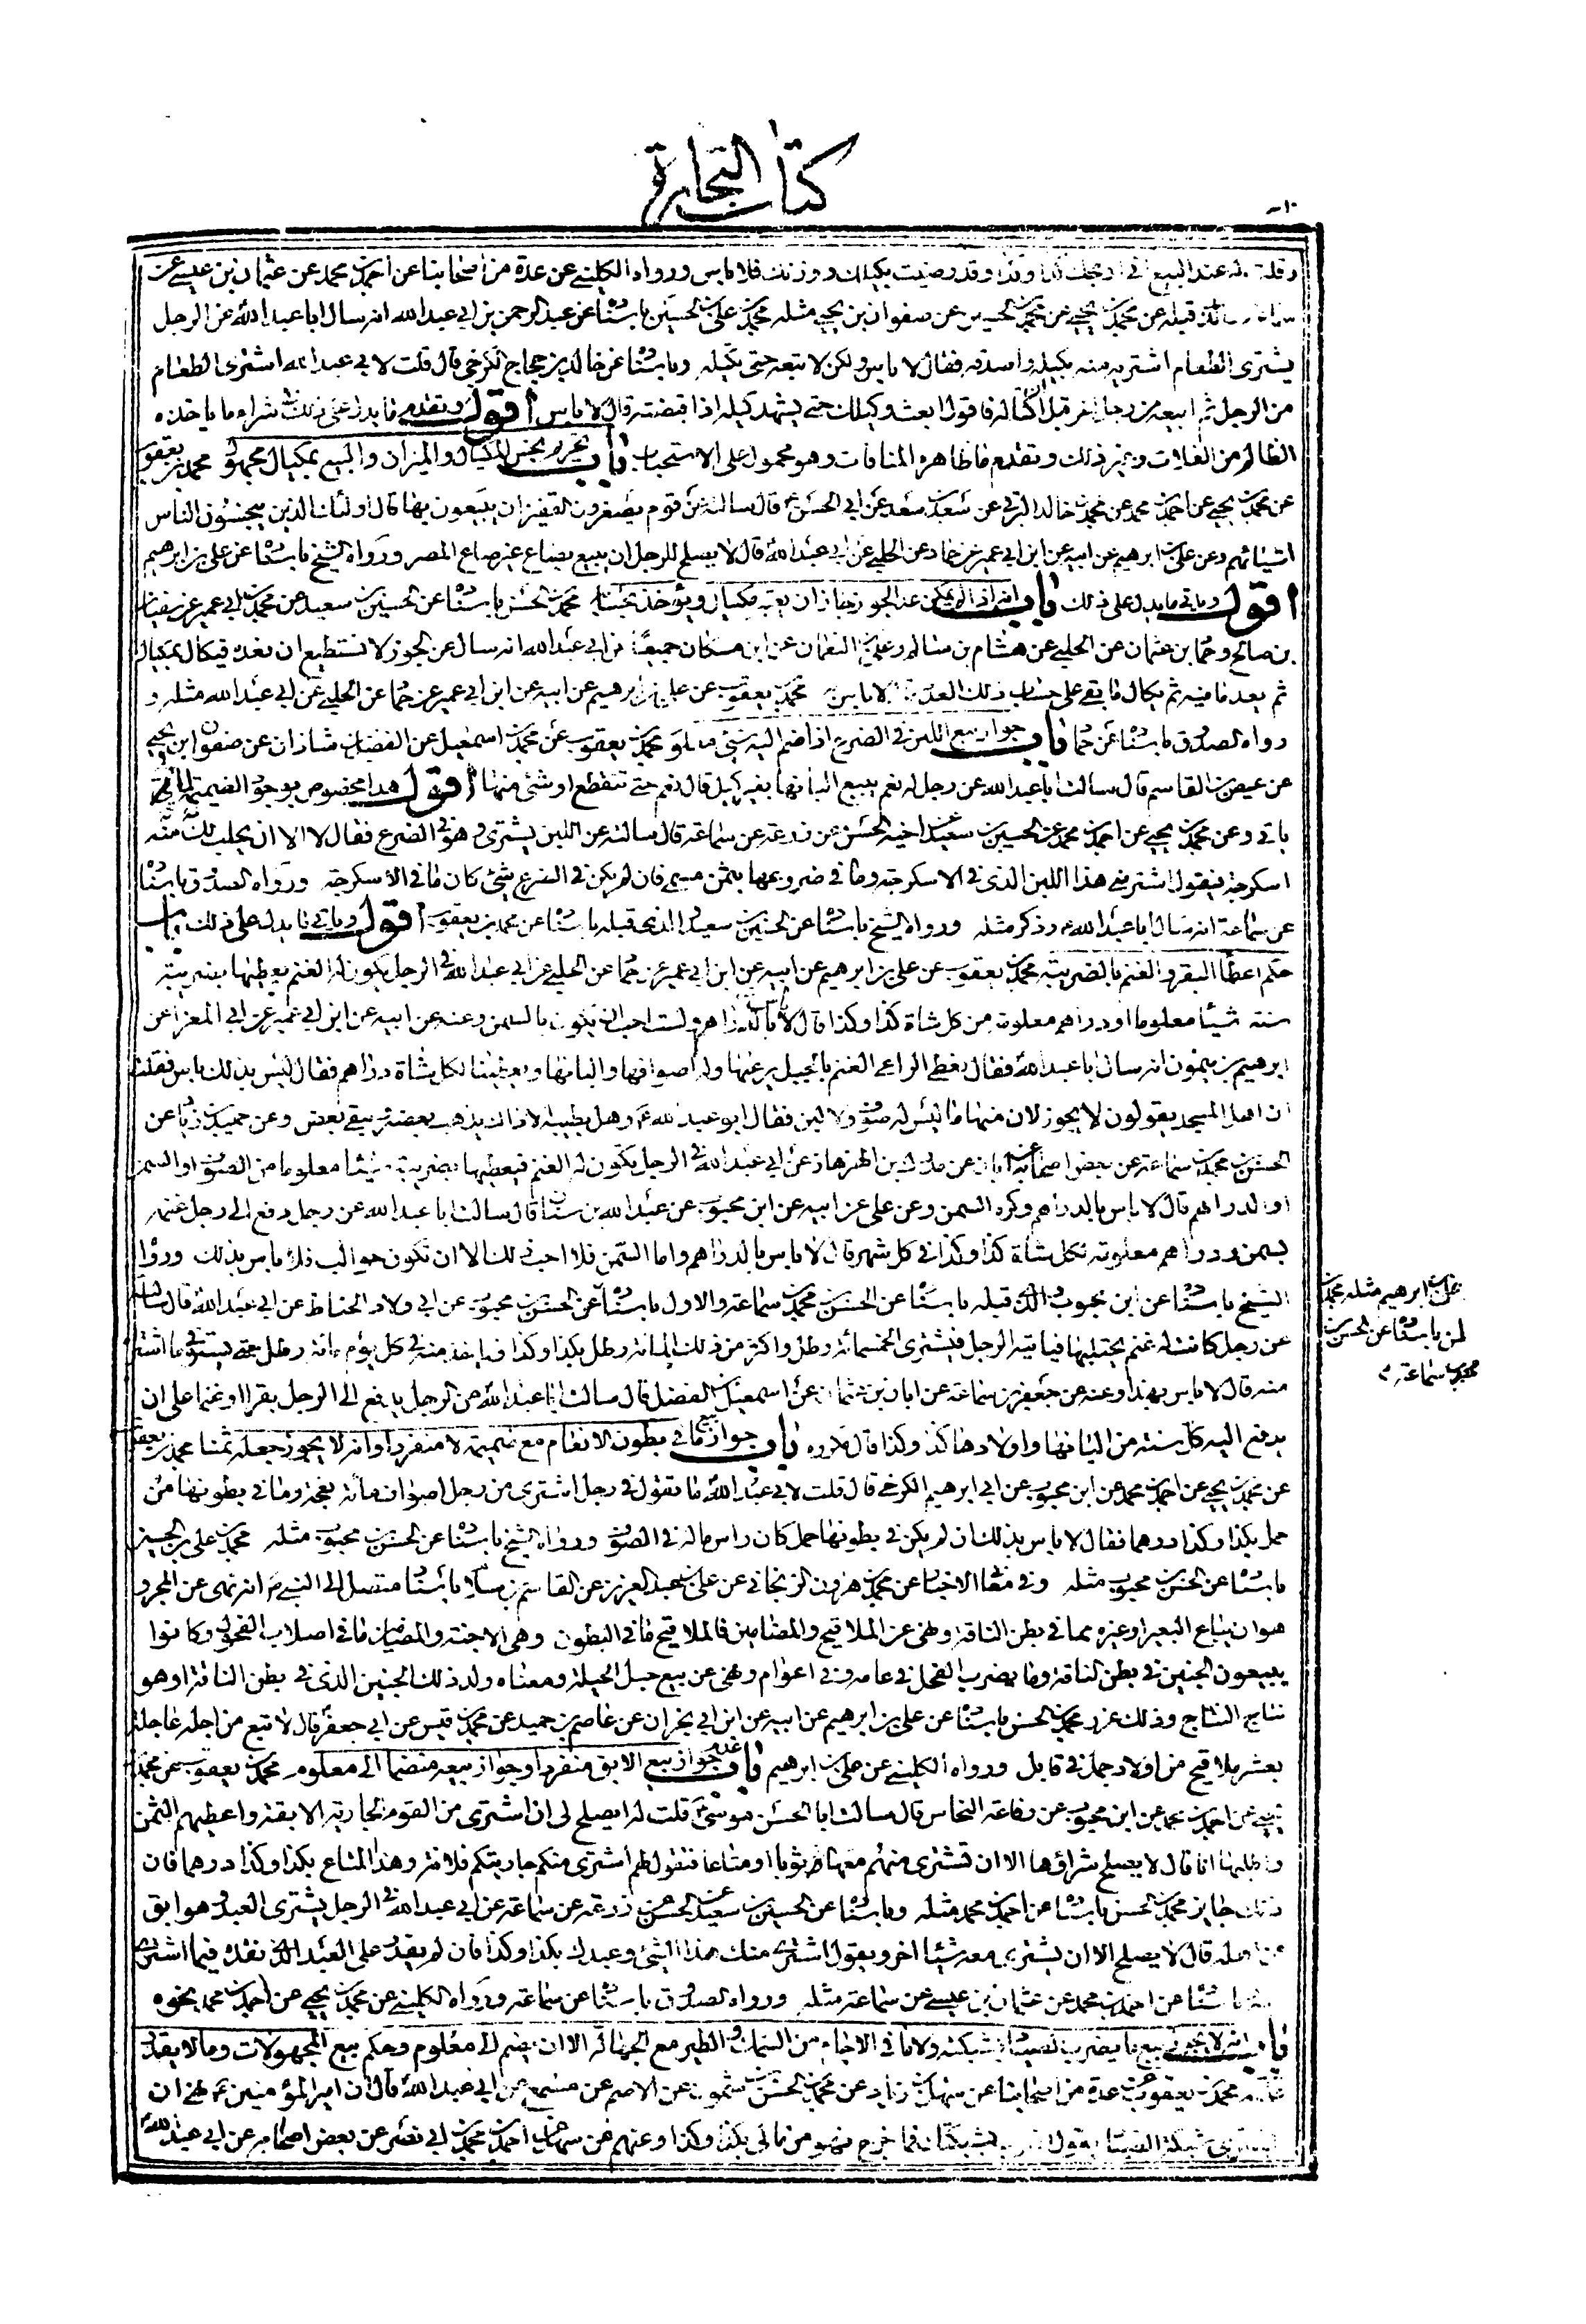 كتاب التجارة
وقلت له عند البيع اني اربحك كذا وكذا وقد رضيت بكيلك ووزنك فلا باس ورواه الكليني عن عدة من اصحابنا عن احمد بن محمد عن عثمان بن عيسى عن
قبله عن محمد بن يحيى عن محمد بن الحسين عن صفوان بن يحيى مثله محمد بن علي بن الحسين باسناده عن عبد الرحمن بن ابي عبد الله انه سال ابا عبد الله عن الرجل
يشتري الطعام اشتريه منه بكيله واصدقه فقال لا باس ولكن لا تبعه حتى تكيله وباسناده عن خالد بن حجاج الكرخي قال قلت لابي عبد الله اشتري الطعام
من الرجل ثم ابيعه من رجل اخر قبل ان اكتاله فاقول ابعث وكيلك حتى يشهد كيله اذا قبضته قال لا باس اقول وتقدم ما يدل على ذلك في شراء ما ياخذه
الظالم من الغلات وغير ذلك وتقدم ما ظاهره المنافات وهو محمول على الاستحباب باب تحريم بخس المكيال والميزان والبيع بمكيال مجهول محمد بن يعقوب
عن محمد بن يحيى عن احمد بن محمد عن محمد بن خالد البرقي عن سعد بن سعد عن ابي الحسن ع قال سالته عن قوم يصغرون القفيزان يبيعون بها قال اولئك الذين يبخسون الناس
اشيائهم وعن علي بن ابرهيم عن ابيه عن ابن ابي عمير عن حماد عن الحلبي عن ابي عبد الله قال لا يصلح للرجل ان يبيع بصاع غير صاع المصر ورواه الشيخ باسناده عن علي بن ابرهيم
اقول وياتي ما يدل على ذلك باب انه اذا لم يمكن عد الجوز جاز ان يعتبر مكيال ويؤخذ بحسابه محمد بن الحسن باسناده عن الحسين بن سعيد عن محمد بن ابي عمير عن
بن صالح وحماد بن عثمان عن الحلبي عن هشام بن سالم وعلي بن النعمان عن ابن مسكان جميعا عن ابي عبد الله انه سال عن الجوز لا نستطيع ان نعده فيكال بمكيال
ثم يعد ما فيه ثم يكال ما بقي على حساب ذلك العدد قال لا باس به محمد بن يعقوب عن علي بن ابرهيم عن ابيه عن ابن ابي عمير عن حماد عن الحلبي عن ابي عبد الله مثله و
رواه الصدوق باسناده عن حماد باب جواز بيع اللبن في الضرع اذا ضم اليه شئ معلوم محمد بن يعقوب عن محمد بن اسمعيل عن الفضل بن شاذان عن صفوان ابن يحيى
عن عيص بن القاسم قال سالت ابا عبد الله عن رجل له نعم يبيع البانها بغير كيل قال نعم حتى تنقطع او شئ منها اقول هذا مخصوص بوجود الضميمة لما
ياتي وعن محمد بن يحيى عن احمد بن محمد عن الحسين بن سعيد عن اخيه الحسن عن زرعة عن سماعة قال سالته عن اللبن يشتري وهو في الضرع فقال لا الا ان يحلب لك منه
اسكرجة فيقول اشتر مني هذا اللبن الذي في الاسكرجة وما في ضروعها بثمن مسمى فان لم يكن في الضرع شئ كان ما في الاسكرجة ورواه الصدوق باسناده
عن سماعة انه سال ابا عبد الله وذكر مثله ورواه الشيخ باسناده عن الحسين بن سعيد والذي قبله باسناده عن محمد بن يعقوب اقول وياتي ما يدل على ذلك باب
حكم اعطاء البقر والغنم بالضريبة محمد بن يعقوب عن علي بن ابرهيم عن ابيه عن ابن ابي عمير عن حماد عن الحلبي عن ابي عبد الله في الرجل يكون له الغنم يعطيها بضريبة
سنة شيئا معلوما او دراهم معلومة من كل شاة كذا وكذا قال لا باس بالدراهم ولست احب ان يكون بالسمن وعنه عن ابيه عن ابن ابي عمير عن ابي المغرا عن
ابرهيم بن ميمون انه سال ابا عبد الله فقال يعطي الراعي الغنم بالجبل يرعيها وله اصوافها والبانها ويعطينا لكل شاة دراهم فقال ليس بذلك باس فقلت
ان اهل المسجد يقولون لا يجوز لان منها ما ليس له صوف ولا لبن فقال ابو عبد الله ع وهل يطيبه الا ذاك يذهب بعضه ويبقى بعض وعن حميد بن زياد عن
الحسن بن محمد بن سماعة عن بعض اصحابه عن ابان عن مدرك بن الهزهاز عن ابي عبد الله في الرجل يكون له الغنم فيعطيها بضريبة شيئا معلوما من الصوف او السمن
او الدراهم قال لا باس بالدراهم وكره السمن وعن علي عن ابيه عن ابن محبوب عن عبد الله بن سنان قال سالت ابا عبد الله عن رجل دفع الى رجل غنمه
بسمن ودراهم معلومة لكل شاة كذا وكذا في كل شهر قال لا باس بالدراهم واما السمن فلا احب ذلك الا ان تكون حوالب فلا باس بذلك ورواه
الشيخ باسناده عن ابن محبوب والذي قبله باسناده عن الحسن بن محمد بن سماعة والاول باسناده عن الحسن بن محبوب عن ابي ولاد الحناط عن ابي عبد الله قال سالته
عن رجل كانت له غنم يحتلبها فياتيه الرجل فيشتري الخمسمائة رطل واكثر من ذلك المائة رطل بكذا وكذا فياخذ منه في كل يوم مائة رطل حتى يستوفي ما اشترى
منه قال لا باس بهذا وعنه عن جعفر بن سماعة عن ابان بن عثمان عن اسمعيل بن الفضل قال سالت ابا عبد الله عن الرجل يدفع الى الرجل بقرا او غنما على ان
يدفع اليه كل سنة من البانها واولادها كذا وكذا قال مكروه باب جواز بيع ما في بطون الانعام مع ضميمة لا منفردا وانه لا يجوز جعله ثمنا محمد بن يعقوب
عن محمد بن يحيى عن احمد بن محمد عن ابن محبوب عن ابي ابرهيم الكرخي قال قلت لابي عبد الله ما تقول في رجل اشترى من رجل اصواف مائة نعجة وما في بطونها من
حمل بكذا وكذا درهما فقال لا باس بذلك ان لم يكن في بطونها حمل كان راس ماله في الصوف ورواه الشيخ باسناده عن الحسن بن محبوب مثله محمد بن علي بن الحسين
باسناده عن الحسن بن محبوب مثله وفي معاني الاخبار عن محمد بن هرون الزنجاني عن علي بن عبد العزيز عن القاسم بن سلام باسناد متصل الى النبي ص انه نهى عن المجر و
هو ان يباع البعير او غيره مما في بطن الناقة ونهى عن الملاقيح والمضامين فالملاقيح ما في البطون وهي الاجنة والمضامين ما في اصلاب الفحول وكانوا
يبيعون الجنين في بطن الناقة وما يضرب الفحل في عامه وفي اعوام ونهى عن بيع حبل الحبلة ومعناه ولد ذلك الجنين الذي في بطن الناقة او هو
نتاج النتاج وذلك غرر محمد بن الحسن باسناده عن علي بن ابرهيم عن ابيه عن ابن ابي نجران عن عاصم بن حميد عن محمد بن قيس عن ابي جعفر قال لا تبع من اجله عاجلة
بعشر ملاقيح من اولاد جمل في قابل ورواه الكليني عن علي بن ابرهيم باب عدم جواز بيع الابق منفردا وجواز بيعه منضما الى معلوم محمد بن يعقوب عن محمد بن
يحيى عن احمد بن محمد عن ابن محبوب عن رفاعة النخاس قال سالت ابا الحسن موسى ع قلت له ايصلح لي ان اشتري من القوم الجارية الابقة واعطيهم الثمن
واطلبها انا قال لا يصلح شراؤها الا ان تشتري منهم معها ثوبا او متاعا فتقول لهم اشتري منكم جاريتكم فلانة وهذا المتاع بكذا وكذا درهما فان
ذلك جايز محمد بن الحسن باسناده عن احمد بن محمد مثله وباسناده عن الحسين بن سعيد عن الحسن عن زرعة عن سماعة عن ابي عبد الله في الرجل يشتري العبد وهو ابق
عن اهله قال لا يصلح الا ان يشتري معه شيئا اخر ويقول اشتري منك هذا الشئ وعبدك بكذا وكذا فان لم يقدر على العبد كان الذي نقده فيما اشترى
منه باسناده عن احمد بن محمد عن عثمان بن عيسى عن سماعة مثله ورواه الصدوق باسناده عن سماعة ورواه الكليني عن محمد بن يحيى عن احمد بن محمد نحوه
باب انه لا يجوز بيع ما يضرب الصياد بشبكته ولا ما في الاجام من السمك والطير مع الجهالة الا ان يضم الى معلوم وحكم بيع المجهولات وما لا يقدر
عليه محمد بن يعقوب عن عدة من اصحابنا عن سهل بن زياد عن محمد بن الحسن بن شمون عن الاصم عن مسمع عن ابي عبد الله قال ان امير المؤمنين ع نهى ان
يشتري شبكة الصياد يقول اضرب بشبكتك فما خرج فهو من مالي بكذا وكذا وعنهم عن سهل عن احمد بن محمد بن ابي نصر عن بعض اصحابه عن ابي عبد الله
علي بن ابرهيم مثله محمد بن
الحسن باسناده عن الحسن بن
محمد بن سماعة